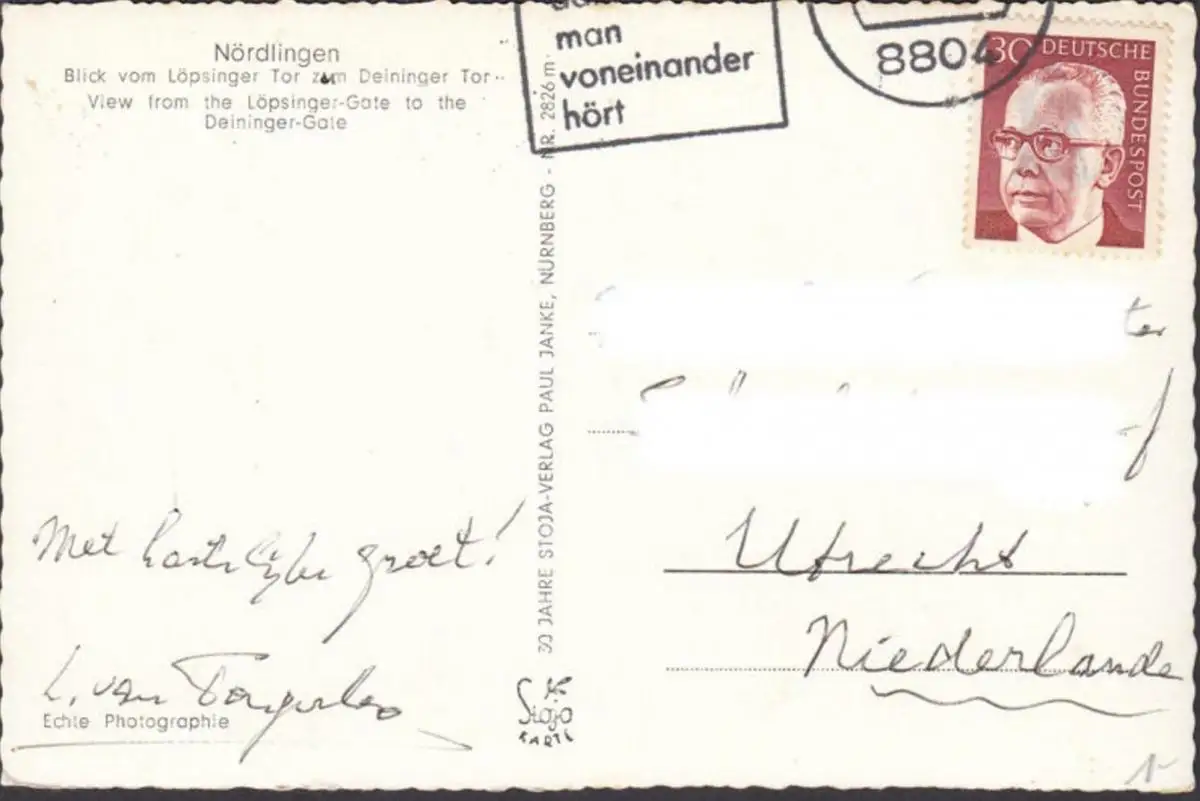 Nördlingen
Blick vom Löpsinger Tor zum Deininger Tor
View from the Löpsinger-Gate to the
Deininger-Gate
man
voneinander
hört
8804
30 DEUTSCHE BUNDESPOST
30 JAHRE STOJA-VERLAG PAUL JANKE, NÜRNBERG - NR. 2826 m
ter
Utrecht
Niederlande
Met hartelyke groet!
L. van
Echte Photographie
Stoja
KARTE